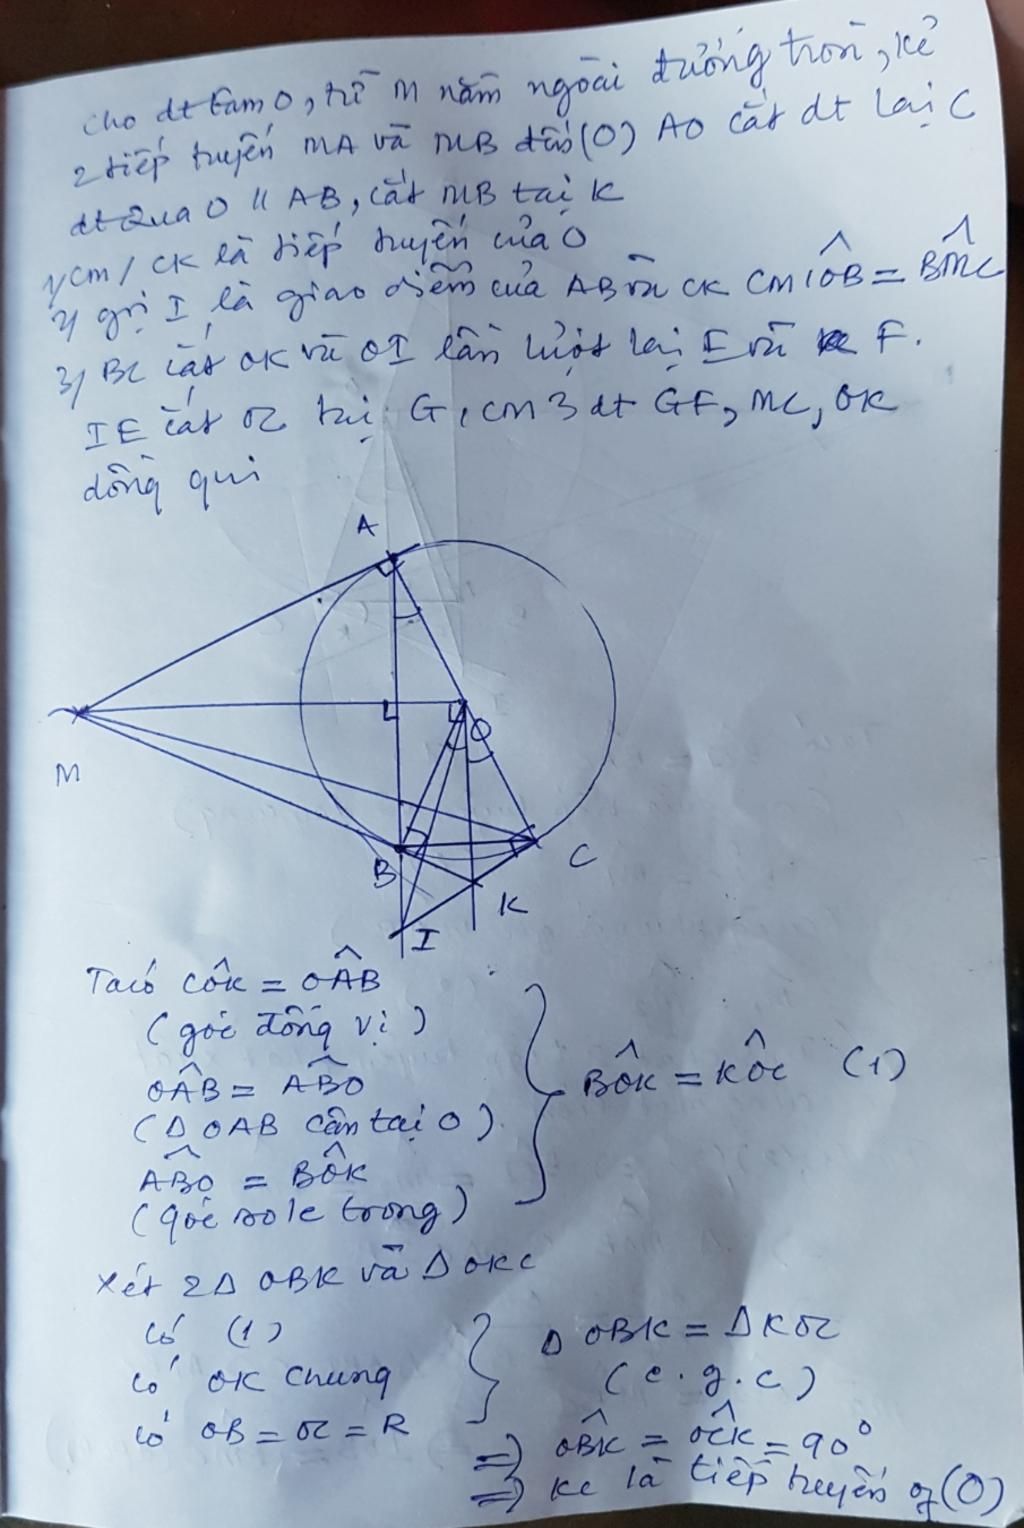 Cho dt tâm O, từ M nằm ngoài đường tròn, kẻ
2 tiếp tuyến MA và MB đến (O) AO cắt dt tại C
dt Qua O // AB, cắt MB tại K
1/ CM / CK là tiếp tuyến của O
2/ gọi I là giao điểm của AB và CK CM IÔB = BM̂C
3/ BC cắt OK và OI lần lượt tại E và F.
IE cắt OC tại G, CM 3 dt GF, MC, OK
đồng qui
A
M
O
B
C
K
I
Ta có CÔK = OÂB
(góc đồng vị)
OÂB = AB̂O
(Δ OAB cân tại O)
AB̂O = BÔK
(góc sole trong)
BÔK = KÔC (1)
Xét 2Δ OBK và Δ OKC
có (1)
có OK chung
có OB = OC = R
Δ OBK = Δ KOC
(c.g.c)
=> OB̂K = OĈK = 90°
=> KC là tiếp tuyến of (O)